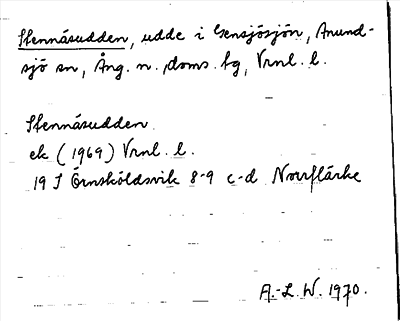 Stennäsudden, udde i Gensjösjön, Anund-
sjö sn, Ång. n. doms. fg, Vrnl. l.
Stennäsudden
ek (1969) Vrnl. l.
19 J Örnsköldsvik 8-9 c-d Norrflärke
A.-L. W. 1970.